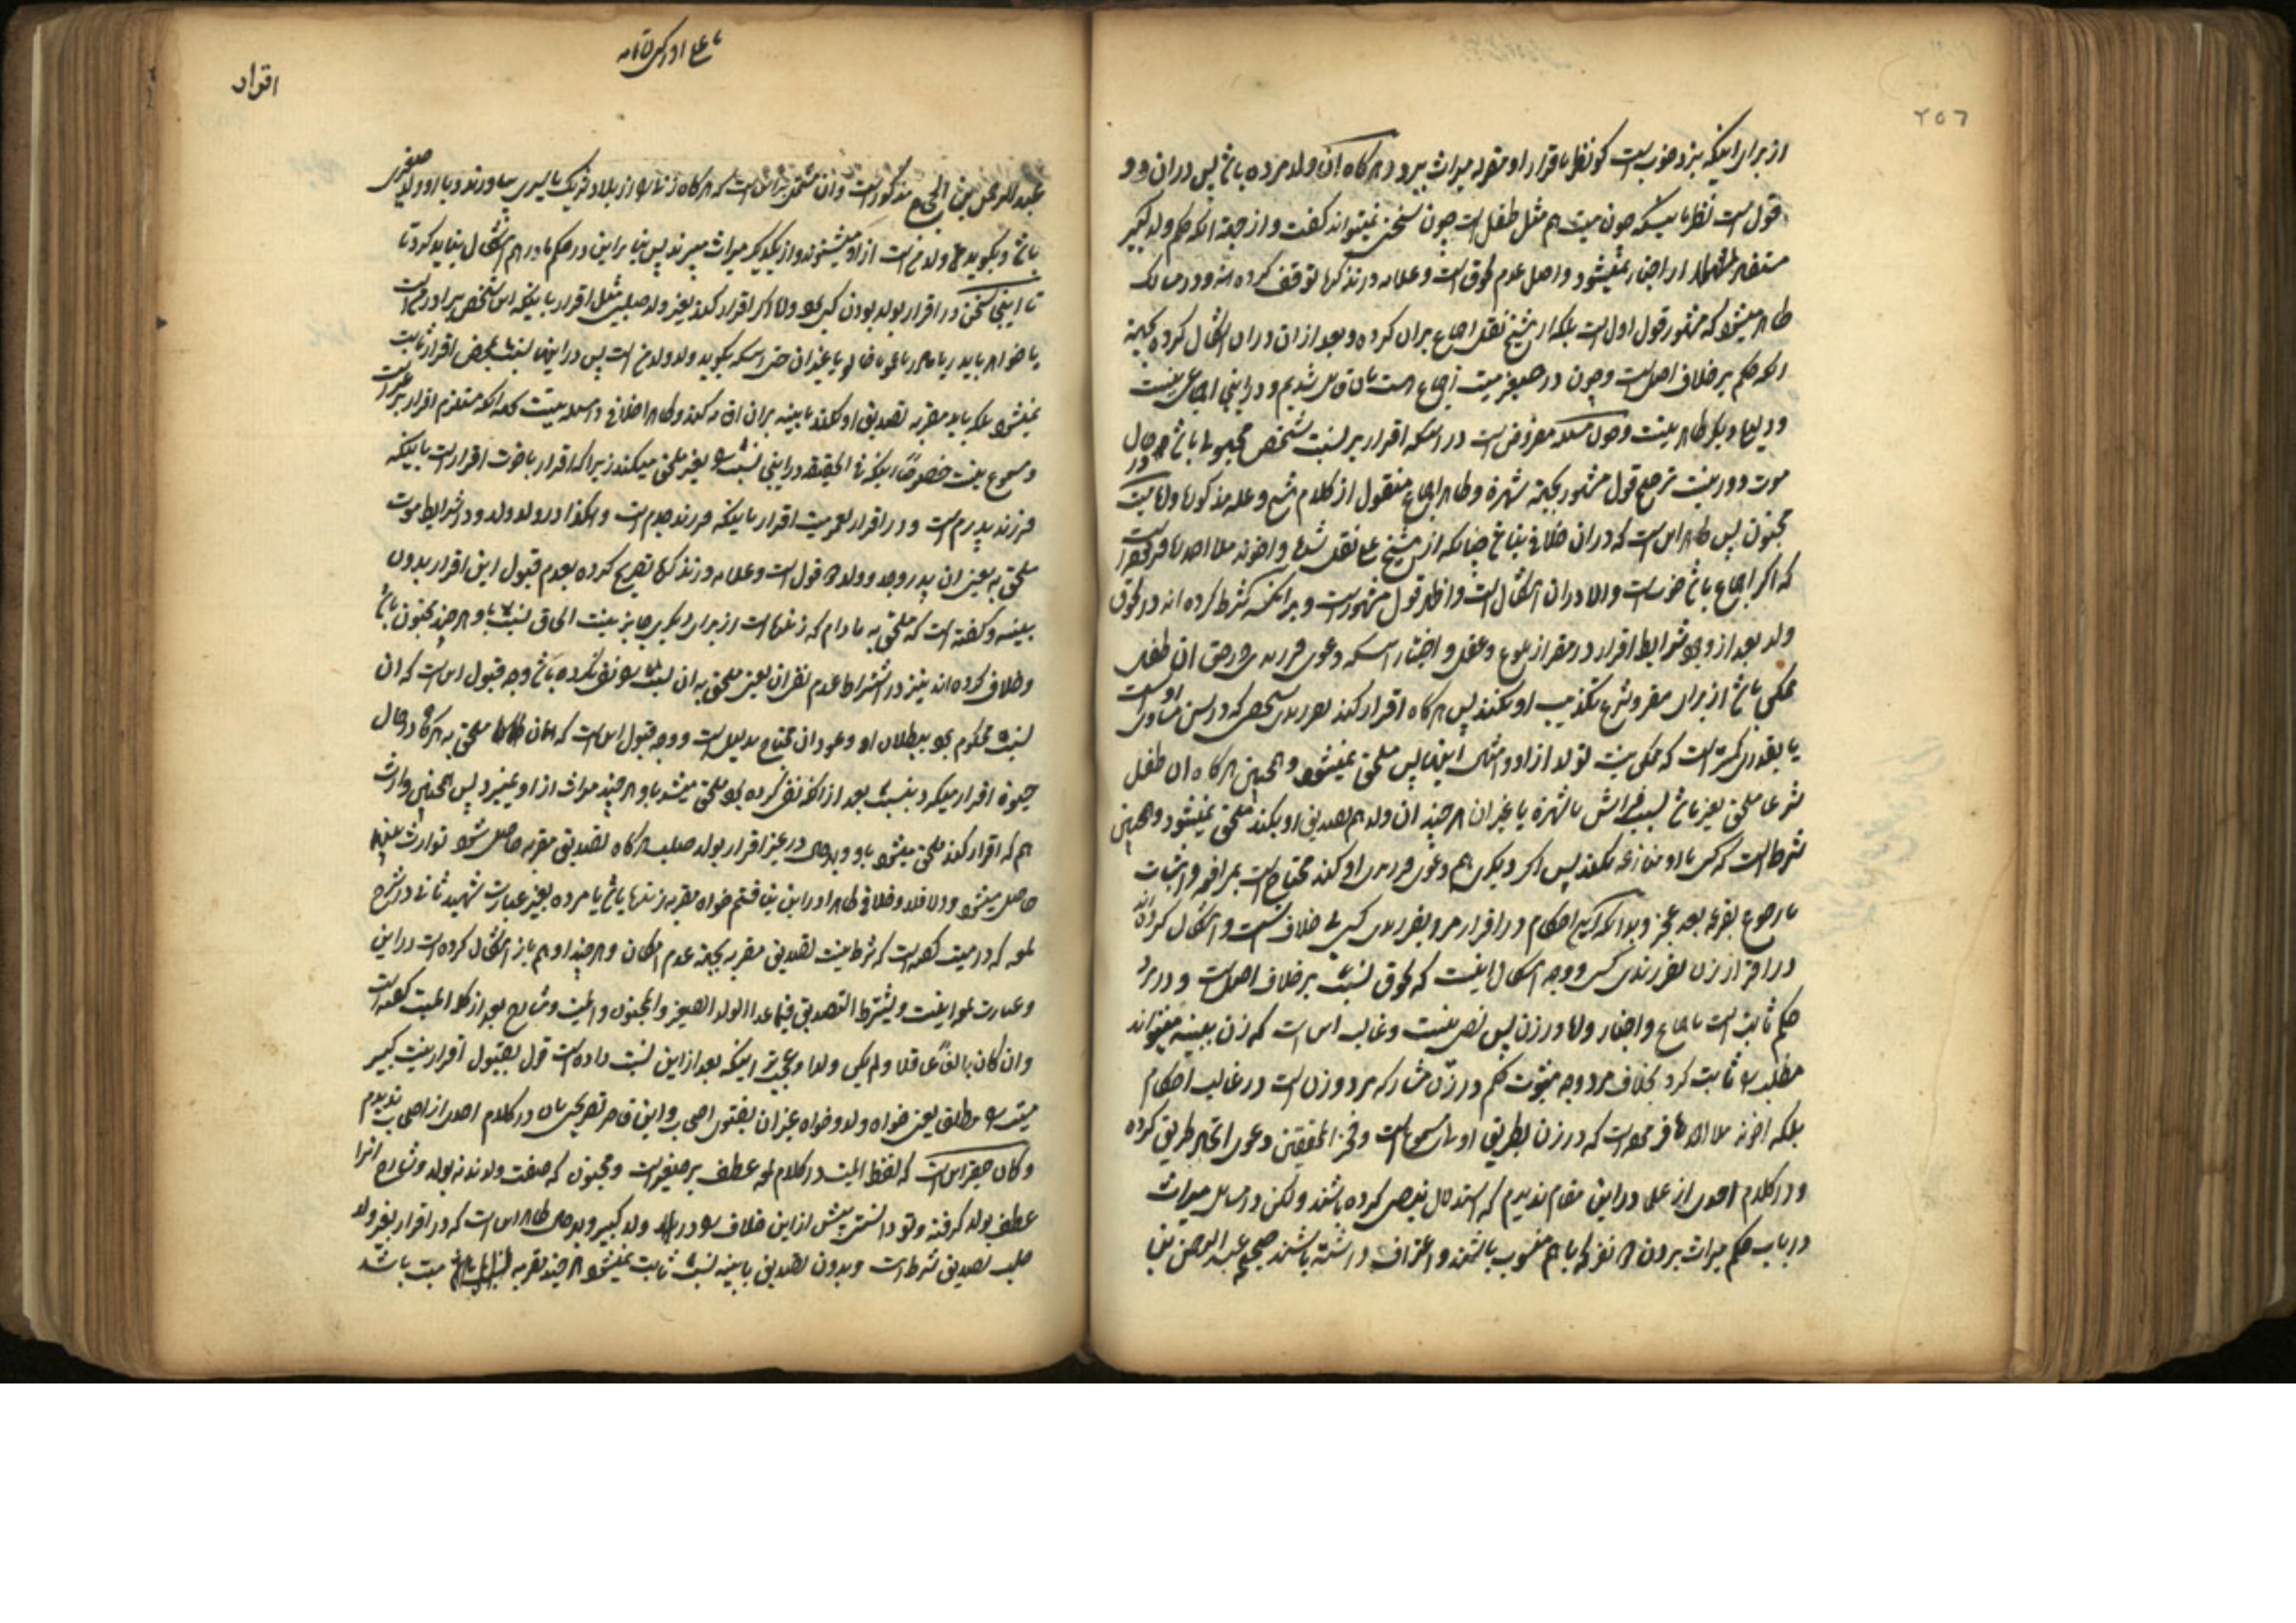 ٢٥٦
از برای اینکه نزد خوب است که نظر باقرار او مقر له میراث ببرد و هرگاه آن ولد مرده باشد پس در آن دو
قول است نظر باینکه چون میت هم مثل طفل است چون سخن نمیتواند گفت و از جهة آنکه حکم ولد کبیر
از اخبار نمیشود و اصل عدم لحوق است و علامه در تذکره توقف کرده و در مسالک
ظاهر میشود که مشهور قول اول است بلکه از شیخ نقل اجماع بر آن کرده و بعد از آن در آن اشکال کرده بجهة
آنکه حکم بر خلاف اصل است و چون در صغیر میت اجماع است بآن قایل شدیم و در اینجا اجماعی نیست
و دلیل دیگر ظاهر نیست و چون مسئله مفروض است در آنکه اقرار بر نسبت شخص مجهول باشد در حال
موت دور نیست ترجیح قول مشهور بجهة شهرة و ظاهر اجماع منقول از کلام شیخ و علامه مذکور و اما میت
مجنون پس ظاهر این است که در آن خلافی نباشد چنانکه از شیخ علی نقل شده و آخوند ملا احمد گفته است
که اگر اجماع باشد خوب است والا در آن اشکال است و اظهر قول مشهور است و بدانکه شرط کرده اند در لحوق
ولد بعد از وجود شرایط اقرار در مقر از بلوغ و عقل و اختیار اینکه دعوی فرزندی در حق آن طفل
ممکن باشد از برای مقر و شرع تکذیب او نکند پس هرگاه اقرار کند بفرزندی شخصی که در سن مساوی او است
یا بقدری کمتر است که ممکن نیست تولد از او و امثال اینها پس ملحق نمیشود و همچنین هرگاه آن طفل
شرعا ملحق بغیر باشد بسبب فراش یا شهرة یا غیر آن هر چند آن ولد هم تصدیق او بکند ملحق نمیشود و همچنین
شرط است که کسی با او منازعه نکند پس اگر دیگری هم دعوی فرزندی او کند محتاج است بمرافعه و اثبات
یا رجوع بقرعه بعد عجز و بدانکه این احکام در اقرار مرد بفرزندی کسی بی خلاف است و اشکال کرده اند
در اقرار زن بفرزندی کسی و وجه اشکال اینست که لحوق نسبت بر خلاف اصل است و در مرد
حکم ثابت است باجماع و اخبار و اما در زن پس نص نیست و غالب این است که زن ببینه میتواند
مطلب را ثابت کرد بخلاف مرد و وجه ثبوت حکم در زن مشارکه مرد و زن است در غالب احکام
بلکه آخوند ملا احمد فرموده است که در زن بطریق اولی مسموع است و فخر المحققین دعوی اتحاد طریق کرده
و در کلام احدی از علما در این مقام ندیدم که استدلال بنصی کرده باشند ولکن در مسایل میراث
در باب حکم میراث بردن دو نفر که با هم منسوب باشند و اعتراف داشته باشند صحیح عبد الرحمن بن
اقرار
عبد الرحمن بن الحجاج مذکور است و آن مشتمل بر این است که هرگاه زنی را از بلاد شرک باسیری بیاورند و با او ولد صغیری
باشد و بگوید که ولد من است آزاد میشوند و از یکدیگر میراث میبرند پس بنابراین در حکم مادر هم اشکال نباید کرد و تا
تا اینجا سخن در اقرار بولد بودن کسی بود و اما اگر اقرار کند بغیر ولد صلبی مثل اقرار باینکه این شخص برادر من است
یا خواهر یا پدر یا مادر یا عمو یا خالو یا غیر آن حتی اینکه بگوید ولد ولد من است پس در اینها نسبت بمحض اقرار ثابت
نمیشود بلکه باید مقر به تصدیق او کند یا بینه بر آن اقامه کند و ظاهرا خلافی در مسئله نیست بجهة آنکه مستلزم اقرار بر غیر است
و مسموع نیست خصوصا اینکه فی الحقیقه در اینجا نسبت را بغیر ملحق میکند زیرا که اقرار باخوت اقرار است باینکه
فرزند پدرم است و در اقرار بعمومیت اقرار باینکه فرزند جدم است و هکذا در ولد ولد و در اشتراط موت
ملحق به یعنی آن پدر و جد و ولد دو قول است و علامه در تذکره تصریح کرده بعدم قبول این اقرار بدون
بینه و گفته است که ملحق به مادام که زنده است از برای دیگری جایز نیست الحاق نسبت باو هر چند مجنون باشد
و خلاف کرده اند نیز در اشتراط عدم نفی آن یعنی ملحق به آن نسبت را نفی نکرده باشد وجه قبول این است که آن
نسبت محکوم بود ببطلان او و عود آن محتاج بدلیل است و وجه قبول این است که ملحق به هرگاه در حال
حیوة اقرار میکرد بنسبت بعد از آنکه نفی کرده بود ملحق میشد باو هر چند میراث از او نمیبرد پس همچنین وارث
هم که اقرار کند ملحق میشود باو و بهر حال در غیر اقرار بولد صلبی هرگاه تصدیق مقر به حاصل شود توارث بینهم
حاصل میشود والا فلا و خلافی ظاهرا در این نیافتم خواه مقر به زنده باشد یا مرده بغیر عبارت شهید ثانی در شرح
لمعه که در میت گفته است که شرط نیست تصدیق مقر به بجهة عدم امکان و هر چند او هم باز اشکال کرده است در این
و عبارت لمعه اینست و یشترط التصدیق فیما عدا الولد الصغیر والمجنون والمیت و شارح بعد از کلمه المیت گفته است
وان کان بالغا عاقلا ولم یکن ولدا و عجیب تر اینکه بعد از این نسبت داده است قول بقبول اقرار بنسبت کبیر
میت را مطلق یعنی خواه ولد و خواه غیر آن بفتوی اصحاب و این قاصر تصریحی بآن در کلام احدی از اصحاب ندیدم
و گمان حقیر این است که لفظ المیت در کلام لمعه عطف بر صغیر است و مجنون که صفت ولدند نه بولد و شارح آنرا
عطف بولد گرفته و تو دانستی پیش از این خلاف را در ولد کبیر و بهر حال ظاهر این است که در اقرار بغیر ولد
صلبی تصدیق شرط است و بدون تصدیق یا بینه نسبت ثابت نمیشود هر چند مقر به میت باشد